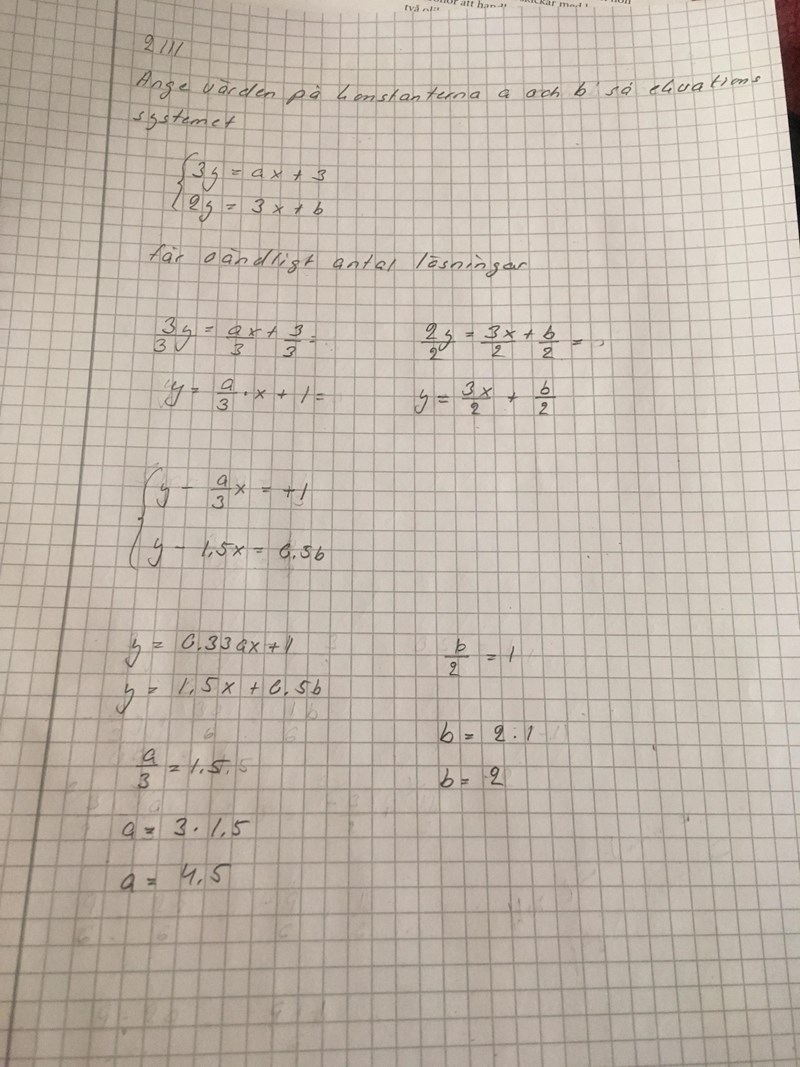 två
2111
Ange värden på konstanterna a och b så ekvations
systemet
3y = ax + 3
2y = 3x + b
får oändligt antal lösningar
3/3 y = ax/3 + 3/3 =
2/2 y = 3x/2 + b/2 =
y = a/3 · x + 1 =
y = 3x/2 + b/2
y - a/3 x = +1
y - 1,5x = 0.5b
y = 0.33ax+1
y = 1,5x + 0.5b
b/2 = 1
a/3 = 1,5
b = 2 · 1
b = 2
a = 3 · 1,5
a = 4,5